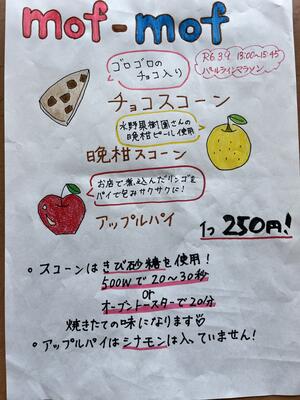 mof-mof
R6.3.9 13:00〜15:45
パールラインマラソン
ゴロゴロの
チョコ入り
チョコスコーン
水野果樹園さんの
晩柑ピール使用
晩柑スコーン
お店で煮込んだリンゴを
パイで包みサクサクに!
アップルパイ
1つ 250円!
• スコーンはきび砂糖を使用!
500Wで20〜30秒
or
オーブントースターで20分
焼きたての味になります
• アップルパイはシナモンは入っていません!